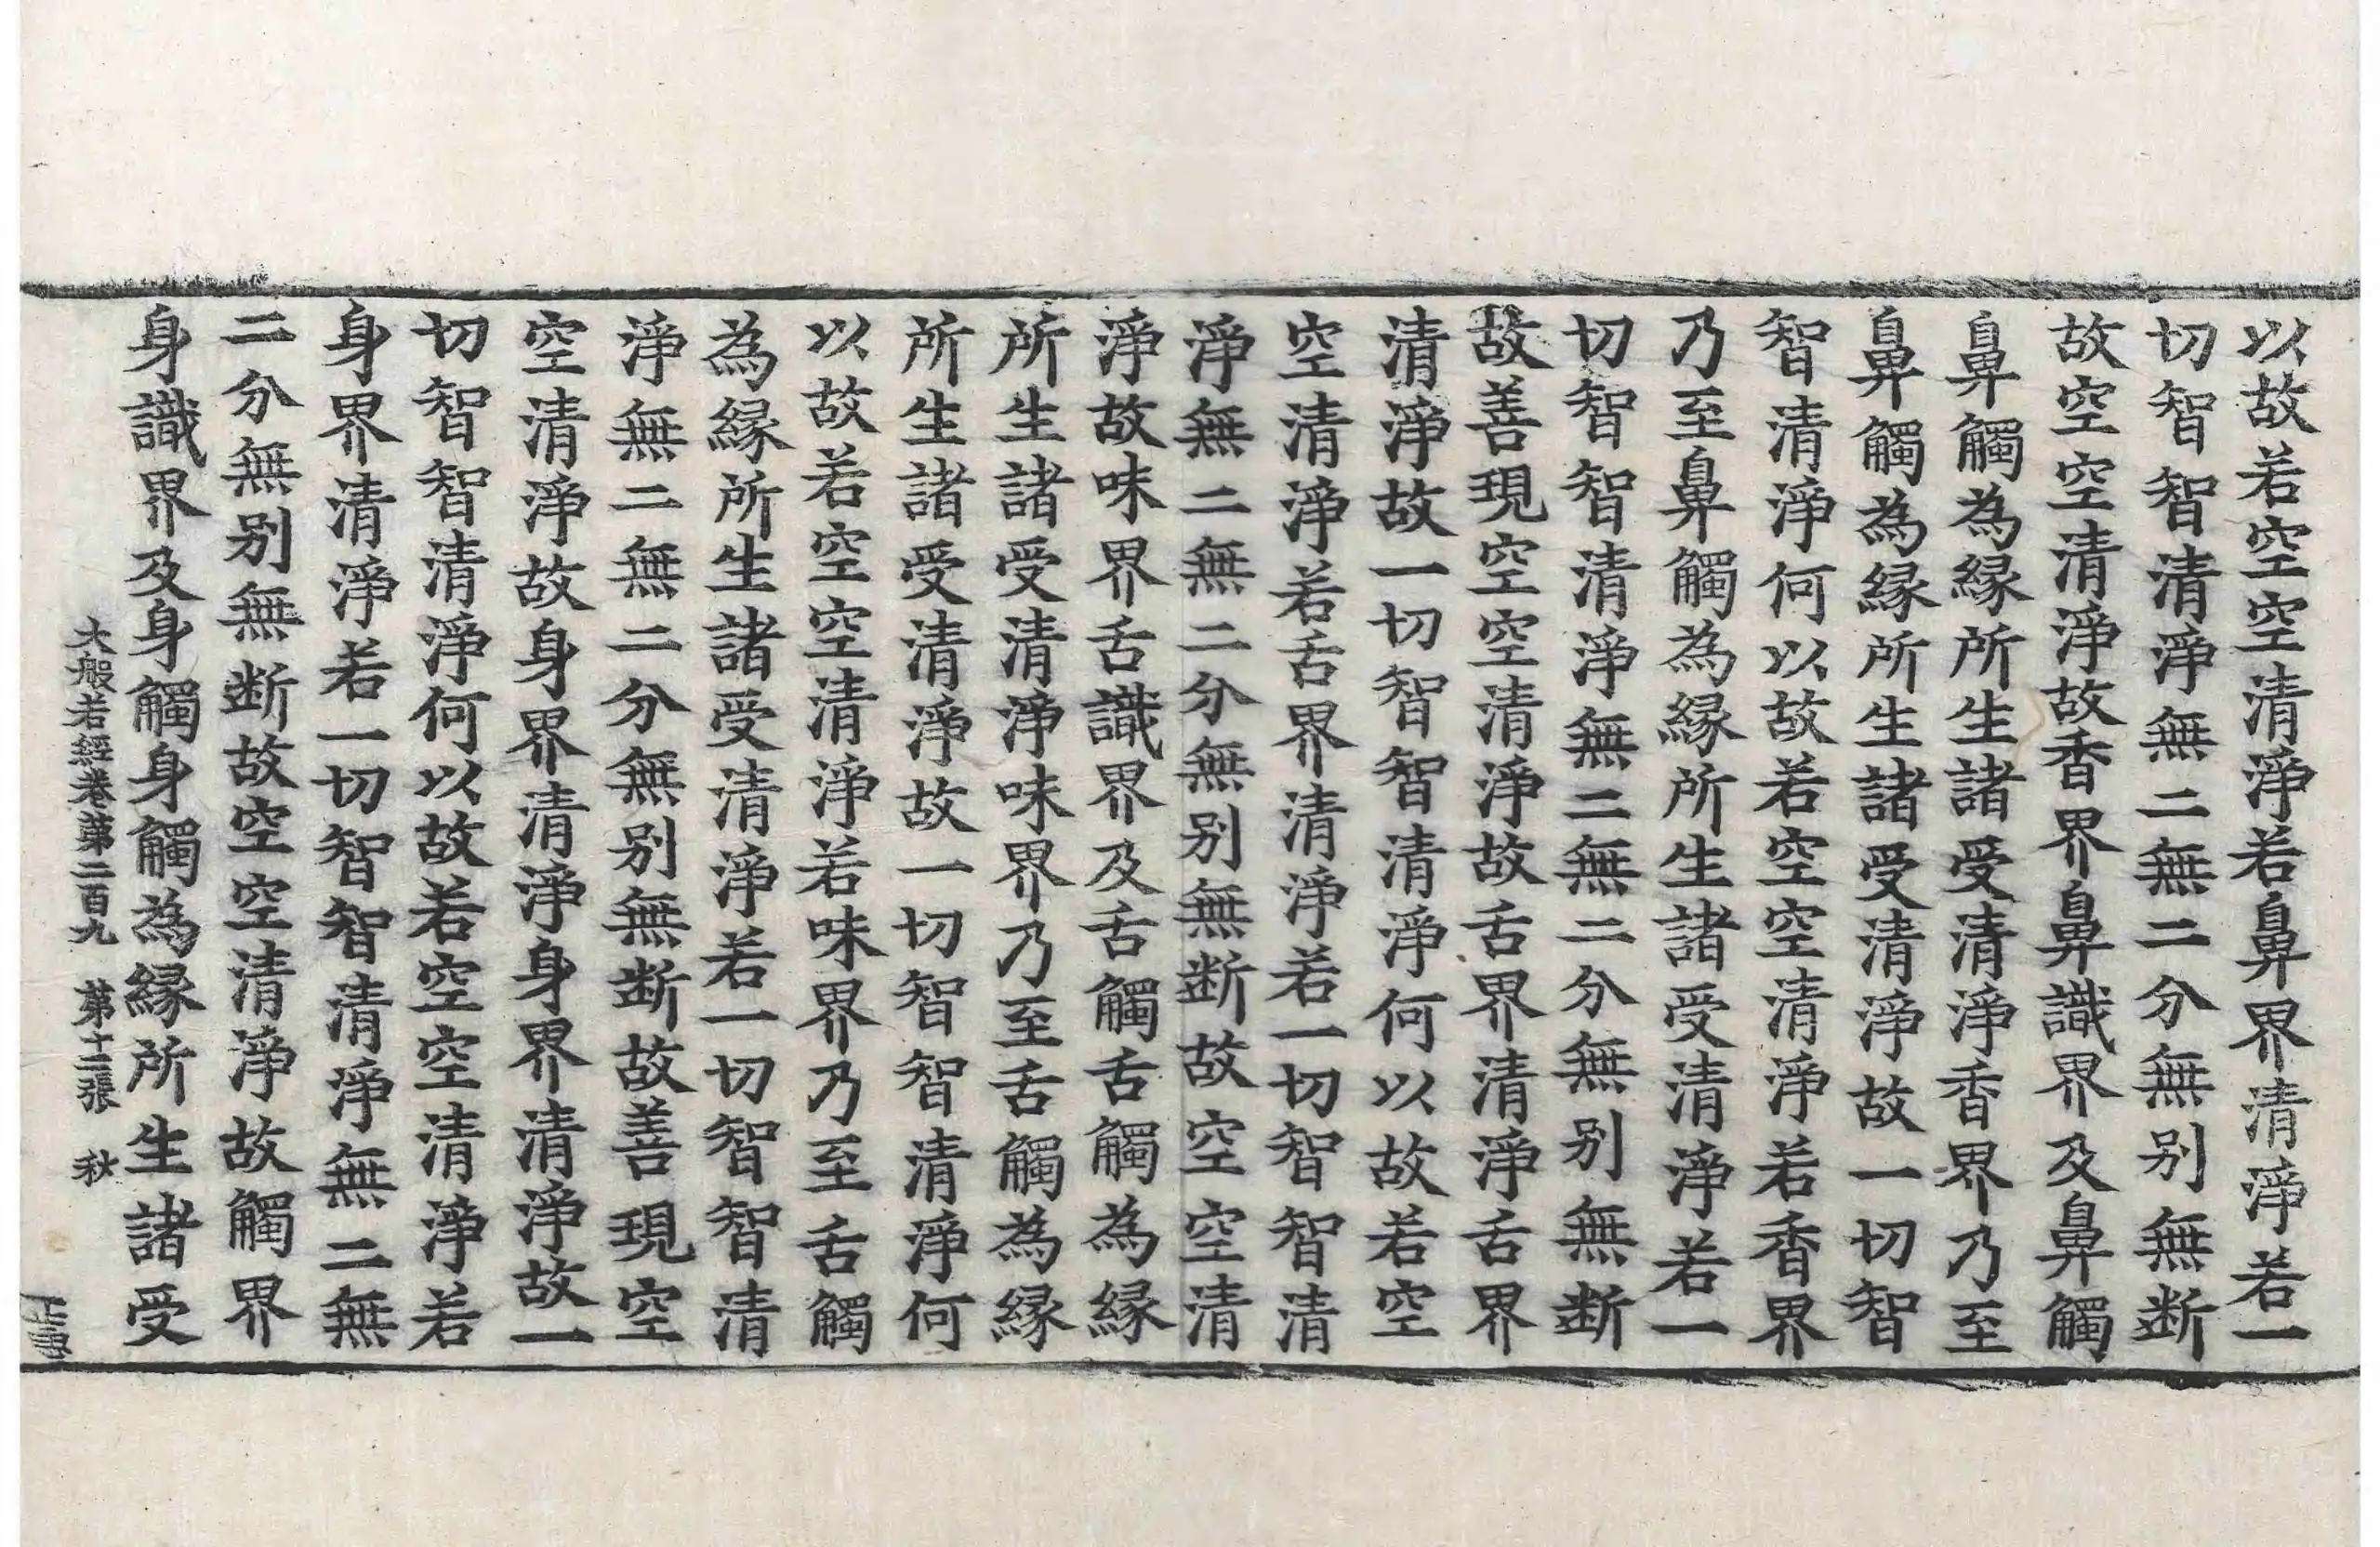 以故若空空清淨若鼻界清淨若一
切智智清淨無二無二分無别無断
故空空清淨故香界鼻識界及鼻觸
鼻觸為縁所生諸受清淨香界乃至
鼻觸為縁所生諸受清淨故一切智
智清淨何以故若空空清淨若香界
乃至鼻觸為縁所生諸受清淨若一
切智智清淨無二無二分無别無断
故善現空空清淨故舌界清淨舌界
清淨故一切智智清淨何以故若空
空清淨若舌界清淨若一切智智清
淨無二無二分無别無断故空空清
淨故味界舌識界及舌觸舌觸為縁
所生諸受清淨味界乃至舌觸為縁
所生諸受清淨故一切智智清淨何
以故若空空清淨若味界乃至舌觸
為縁所生諸受清淨若一切智智清
淨無二無二分無别無断故善現空
空清淨故身界清淨身界清淨故一
切智智清淨何以故若空空清淨若
身界清淨若一切智智清淨無二無
二分無别無断故空空清淨故觸界
身識界及身觸身觸為縁所生諸受
大般若經卷第二百九 第十二張 秋